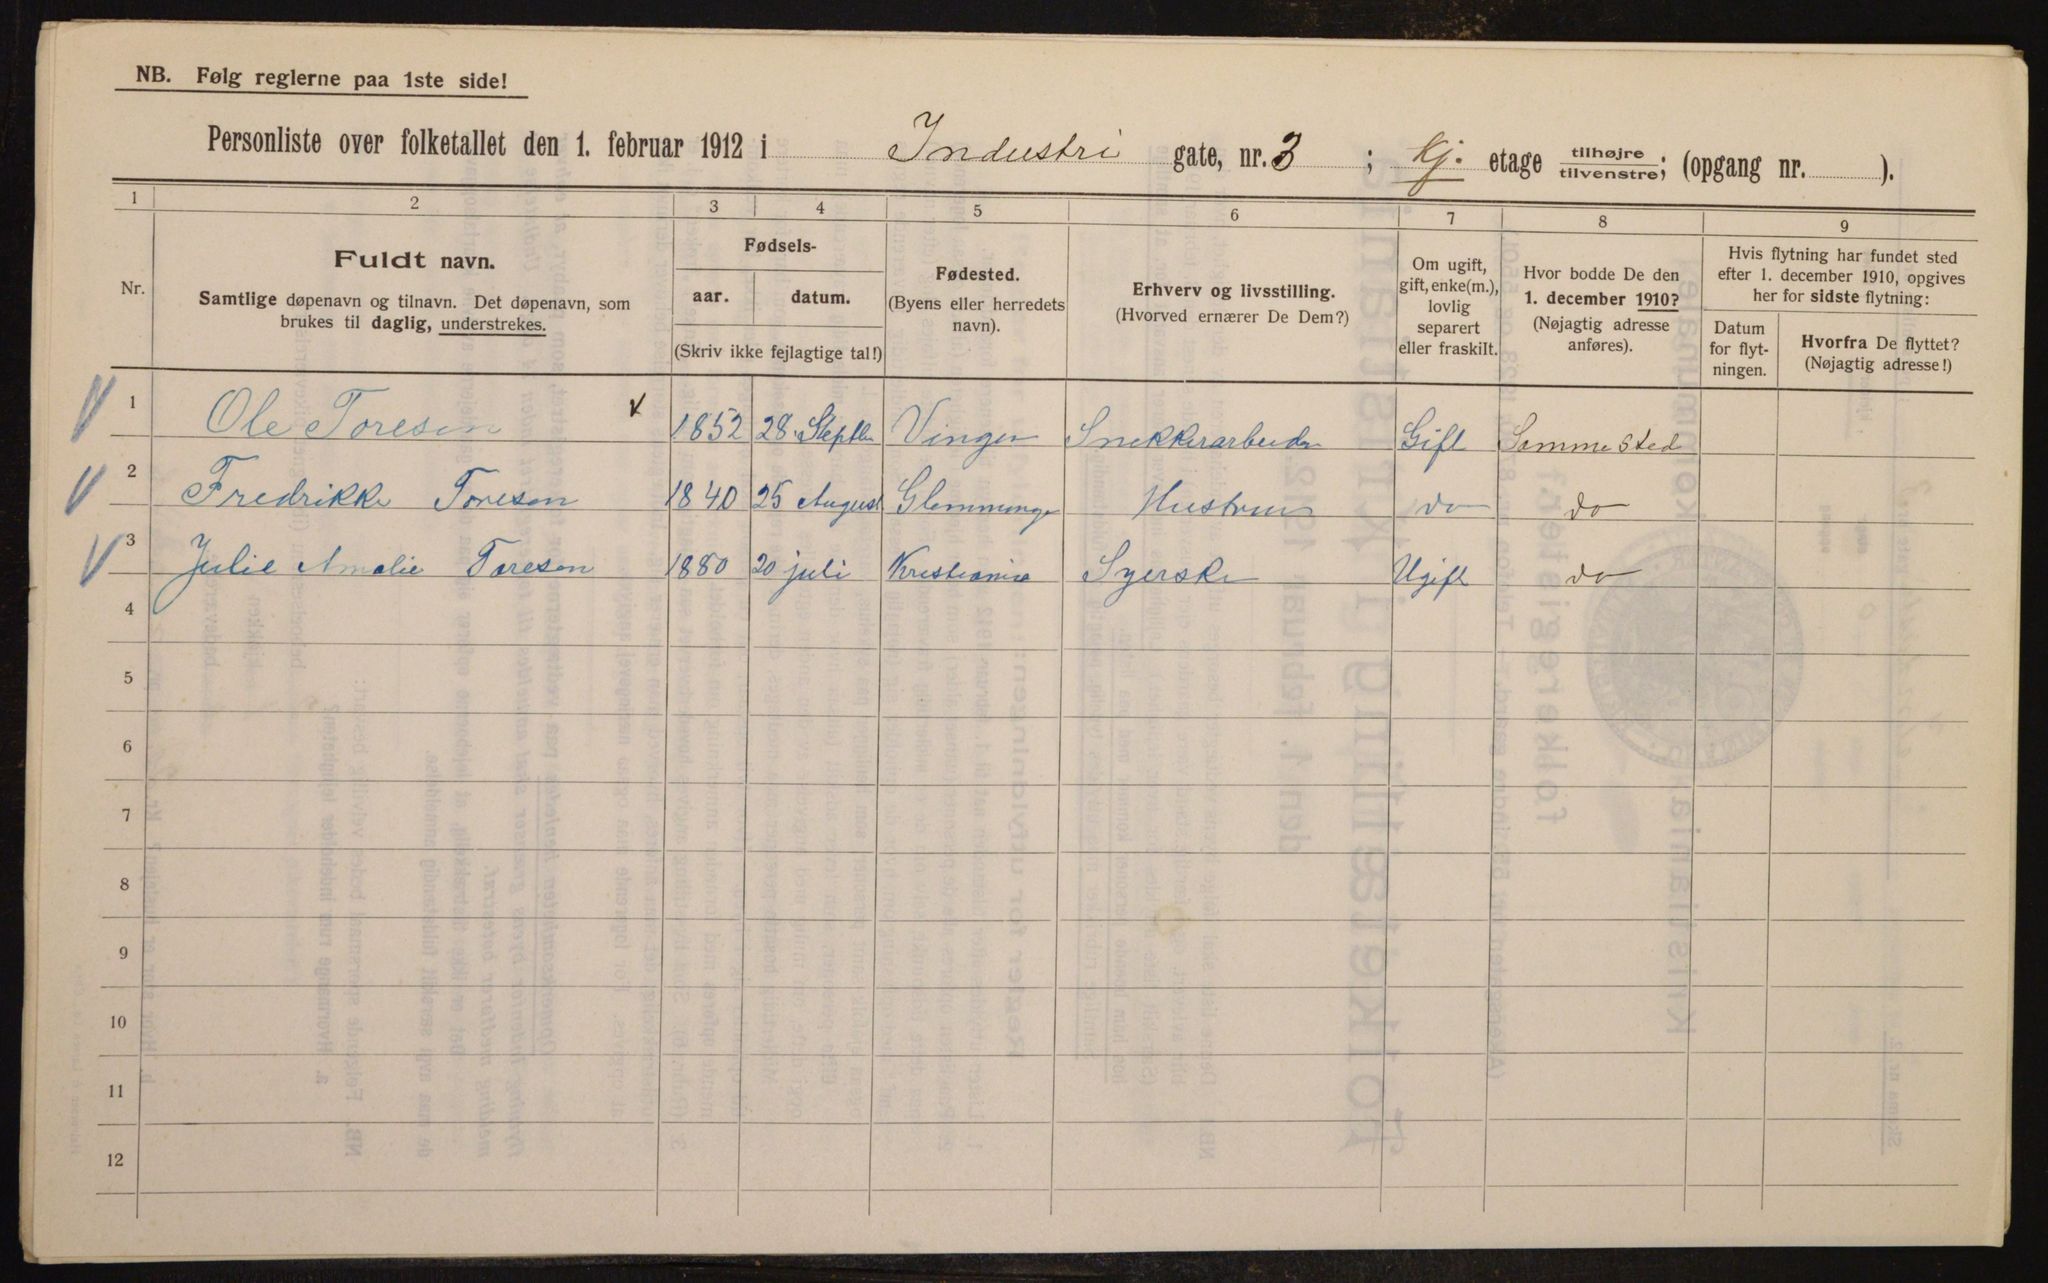 NB. Følg reglerne paa 1ste side!
Personliste over folketallet den 1. februar 1912 i Industri gate, nr. 3 ; Kj. etage tilhøjre tilvenstre; (opgang nr. ).
1 2 3 4 5 6 7 8 9
Nr.
Fuldt navn.
Samtlige døpenavn og tilnavn. Det døpenavn, som
brukes til daglig, understrekes.
Fødsels-
aar. datum.
(Skriv ikke fejlagtige tal!)
Fødested.
(Byens eller herredets
navn).
Erhverv og livsstilling.
(Hvorved ernærer De Dem?)
Om ugift,
gift, enke(m.),
lovlig
separert
eller fraskilt.
Hvor bodde De den
1. december 1910?
(Nøjagtig adresse
anføres).
Hvis flytning har fundet sted
efter 1. december 1910, opgives
her for sidste flytning:
Datum
for flyt-
ningen.
Hvorfra De flyttet?
(Nøjagtig adresse!)
1 Ole Toresen 1852 28 Septbr Vinger Snekkerarbeider Gift Samme sted
2 Fredrikke Toresen 1840 25 August Glemminge Hustru do do
3 Julie Amalie Toresen 1880 20 juli Kristiania Syerske Ugift do
4
5
6
7
8
9
10
11
12